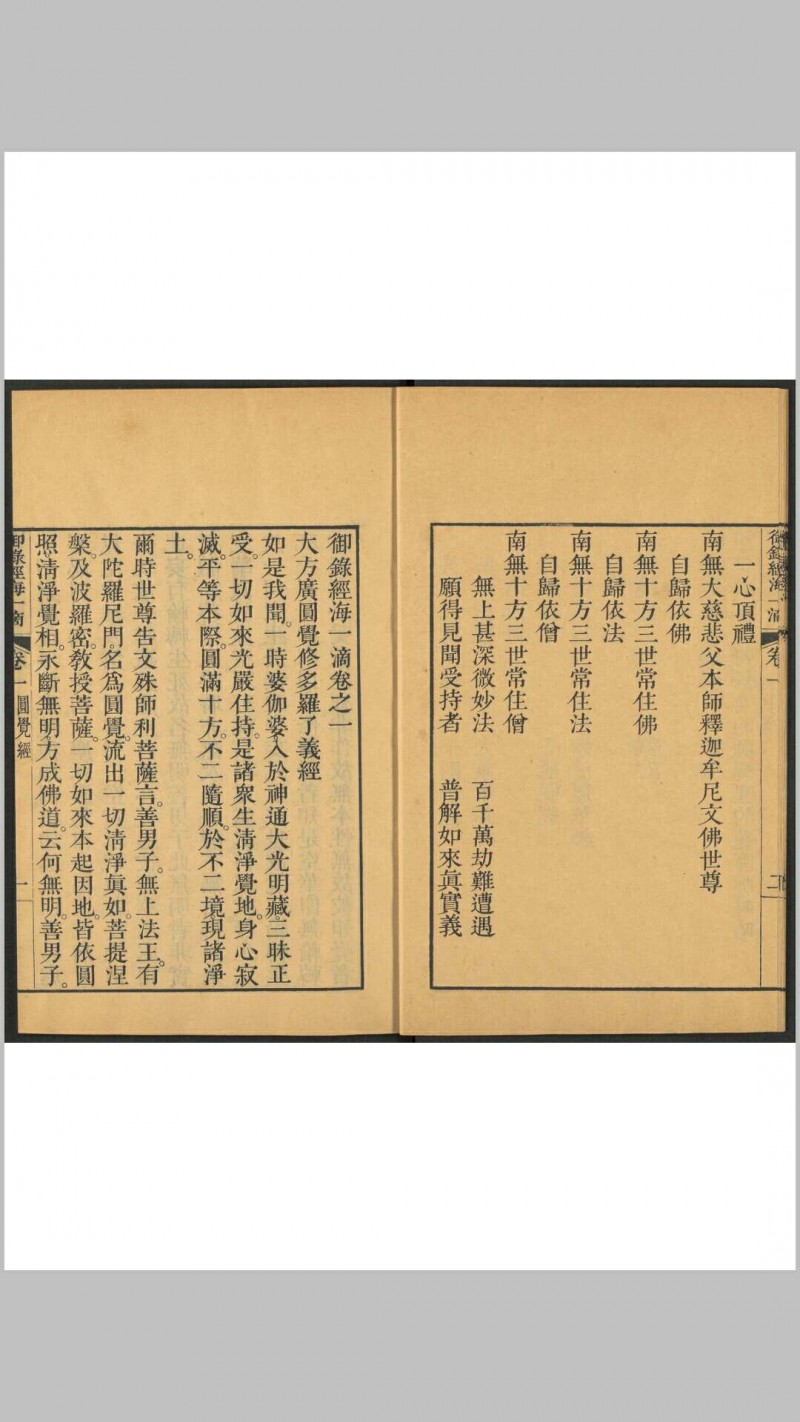 一心頂禮
南無大慈悲父本師釋迦牟尼文佛世尊
自歸依佛
南無十方三世常住佛
自歸依法
南無十方三世常住法
自歸依僧
南無十方三世常住僧
無上甚深微妙法 百千萬劫難遭遇
願得見聞受持者 普解如來眞實義
御錄經海一滴卷之一
大方廣圓覺修多羅了義經
如是我聞。一時婆伽婆。入於神通大光明藏。三昧正
受。一切如來光嚴住持。是諸衆生淸淨覺地。身心寂
滅。平等本際。圓滿十方。不二隨順。於不二境現諸淨
土。
爾時世尊告文殊師利菩薩言。善男子。無上法王。有
大陀羅尼門。名爲圓覺。流出一切淸淨眞如。菩提涅
槃。及波羅密。敎授菩薩。一切如來本起因地。皆依圓
照淸淨覺相。永斷無明。方成佛道。云何無明。善男子。
御錄經海一滴 卷一 圓覺經 一